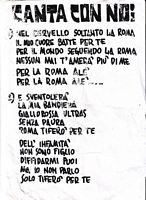 CANTA CON NOI
1) NEL CERVELLO SOLTANTO LA ROMA
IL MIO CUORE BATTE PER TE
PER IL MONDO SEGUENDO LA ROMA
NESSUN MAI T'AMERA' PIU' DI ME
PER LA ROMA ALE'
PER LA ROMA ALE'
2) E SVENTOLERA'
LA MIA BANDIERA
GIALLOROSSA ULTRAS
SENZA PAURA
ROMA TIFERO' PER TE
DELL'INFAMITA'
NON SONO FIGLIO
DIFFIDARMI PUOI
MA IO NON PARLO
SOLO TIFERO' PER TE